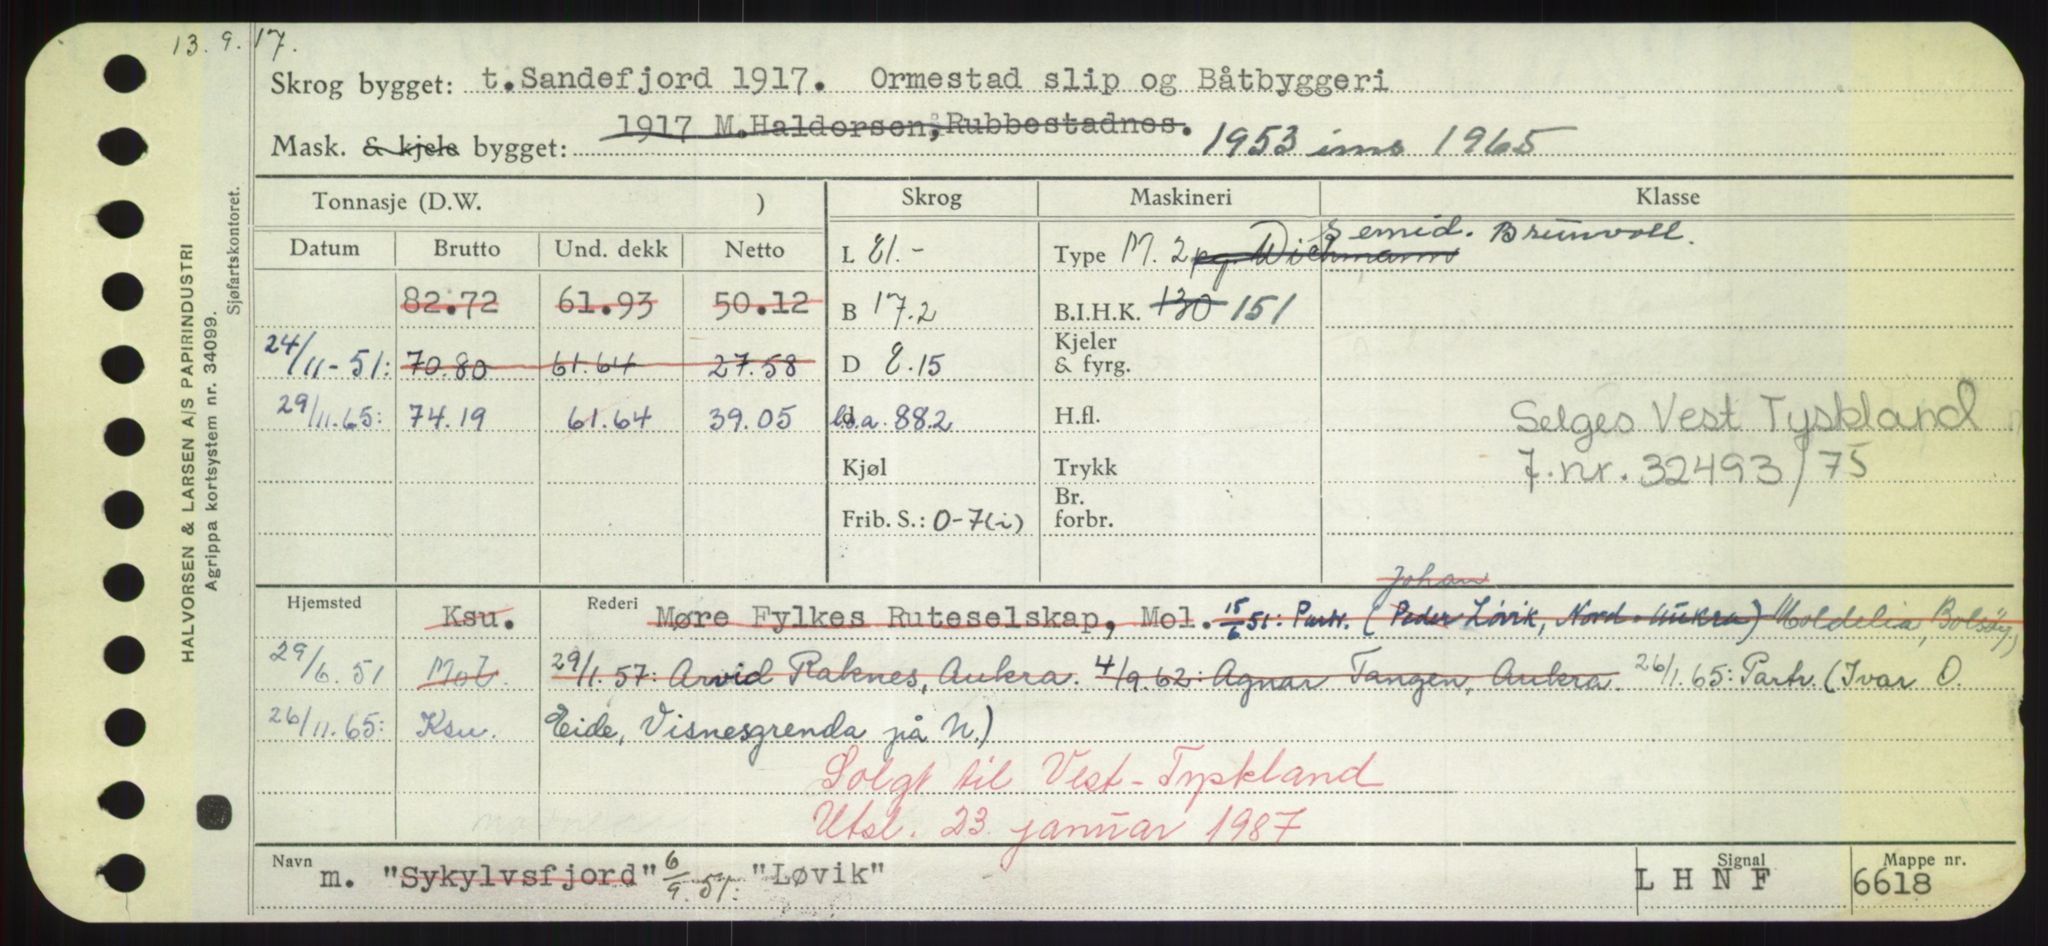 13.9.17.
Skrog bygget: t.Sandefjord 1917. Ormestad slip og Båtbyggeri
Mask. & kjele bygget: 1917 M.Haldorsen, Rubbestadnes. 1953 ims 1965
HALVORSEN & LARSEN A/S PAPIRINDUSTRI
Agrippa kortsystem nr. 34099.
Sjøfartskontoret.
Tonnasje (D.W. ) Skrog Maskineri Klasse
Datum Brutto Und. dekk Netto L 81.- Type M. 2 pg. Wichmann Semid. Brunvoll.
82.72 61.93 50.12 B 17.2 B.I.H.K. 130 151
24/11-51: 70.80 61.64 27.58 D 8.15 Kjeler & fyrg.
29/11.65: 74.19 61.64 39.05 l.o.a. 88.2 H.fl. Selges Vest Tyskland
Kjøl Trykk J.nr. 32493/75
Frib. S.: 0-7(i) Br. forbr.
Johan
Hjemsted Ksu. Rederi Møre Fylkes Ruteselskap, Mol. 15/6 51: Partr. (Peder Løvik, Nord-Aukra) Moldelia, Bolsøy,)
29/6.51 Mol. 29/1.57: Arvid Raknes, Aukra. 4/9.62: Agnar Tangen, Aukra. 26/1.65: Partr. (Ivar O.
26/11.65: Ksu. Eide, Visnesgrenda på N.)
Solgt til Vest-Tyskland
Utsl. 23. januar 1987
Navn m. "Sykylvsfjord" 6/9.51: "Løvik" Signal L H N F Mappe nr. 6618